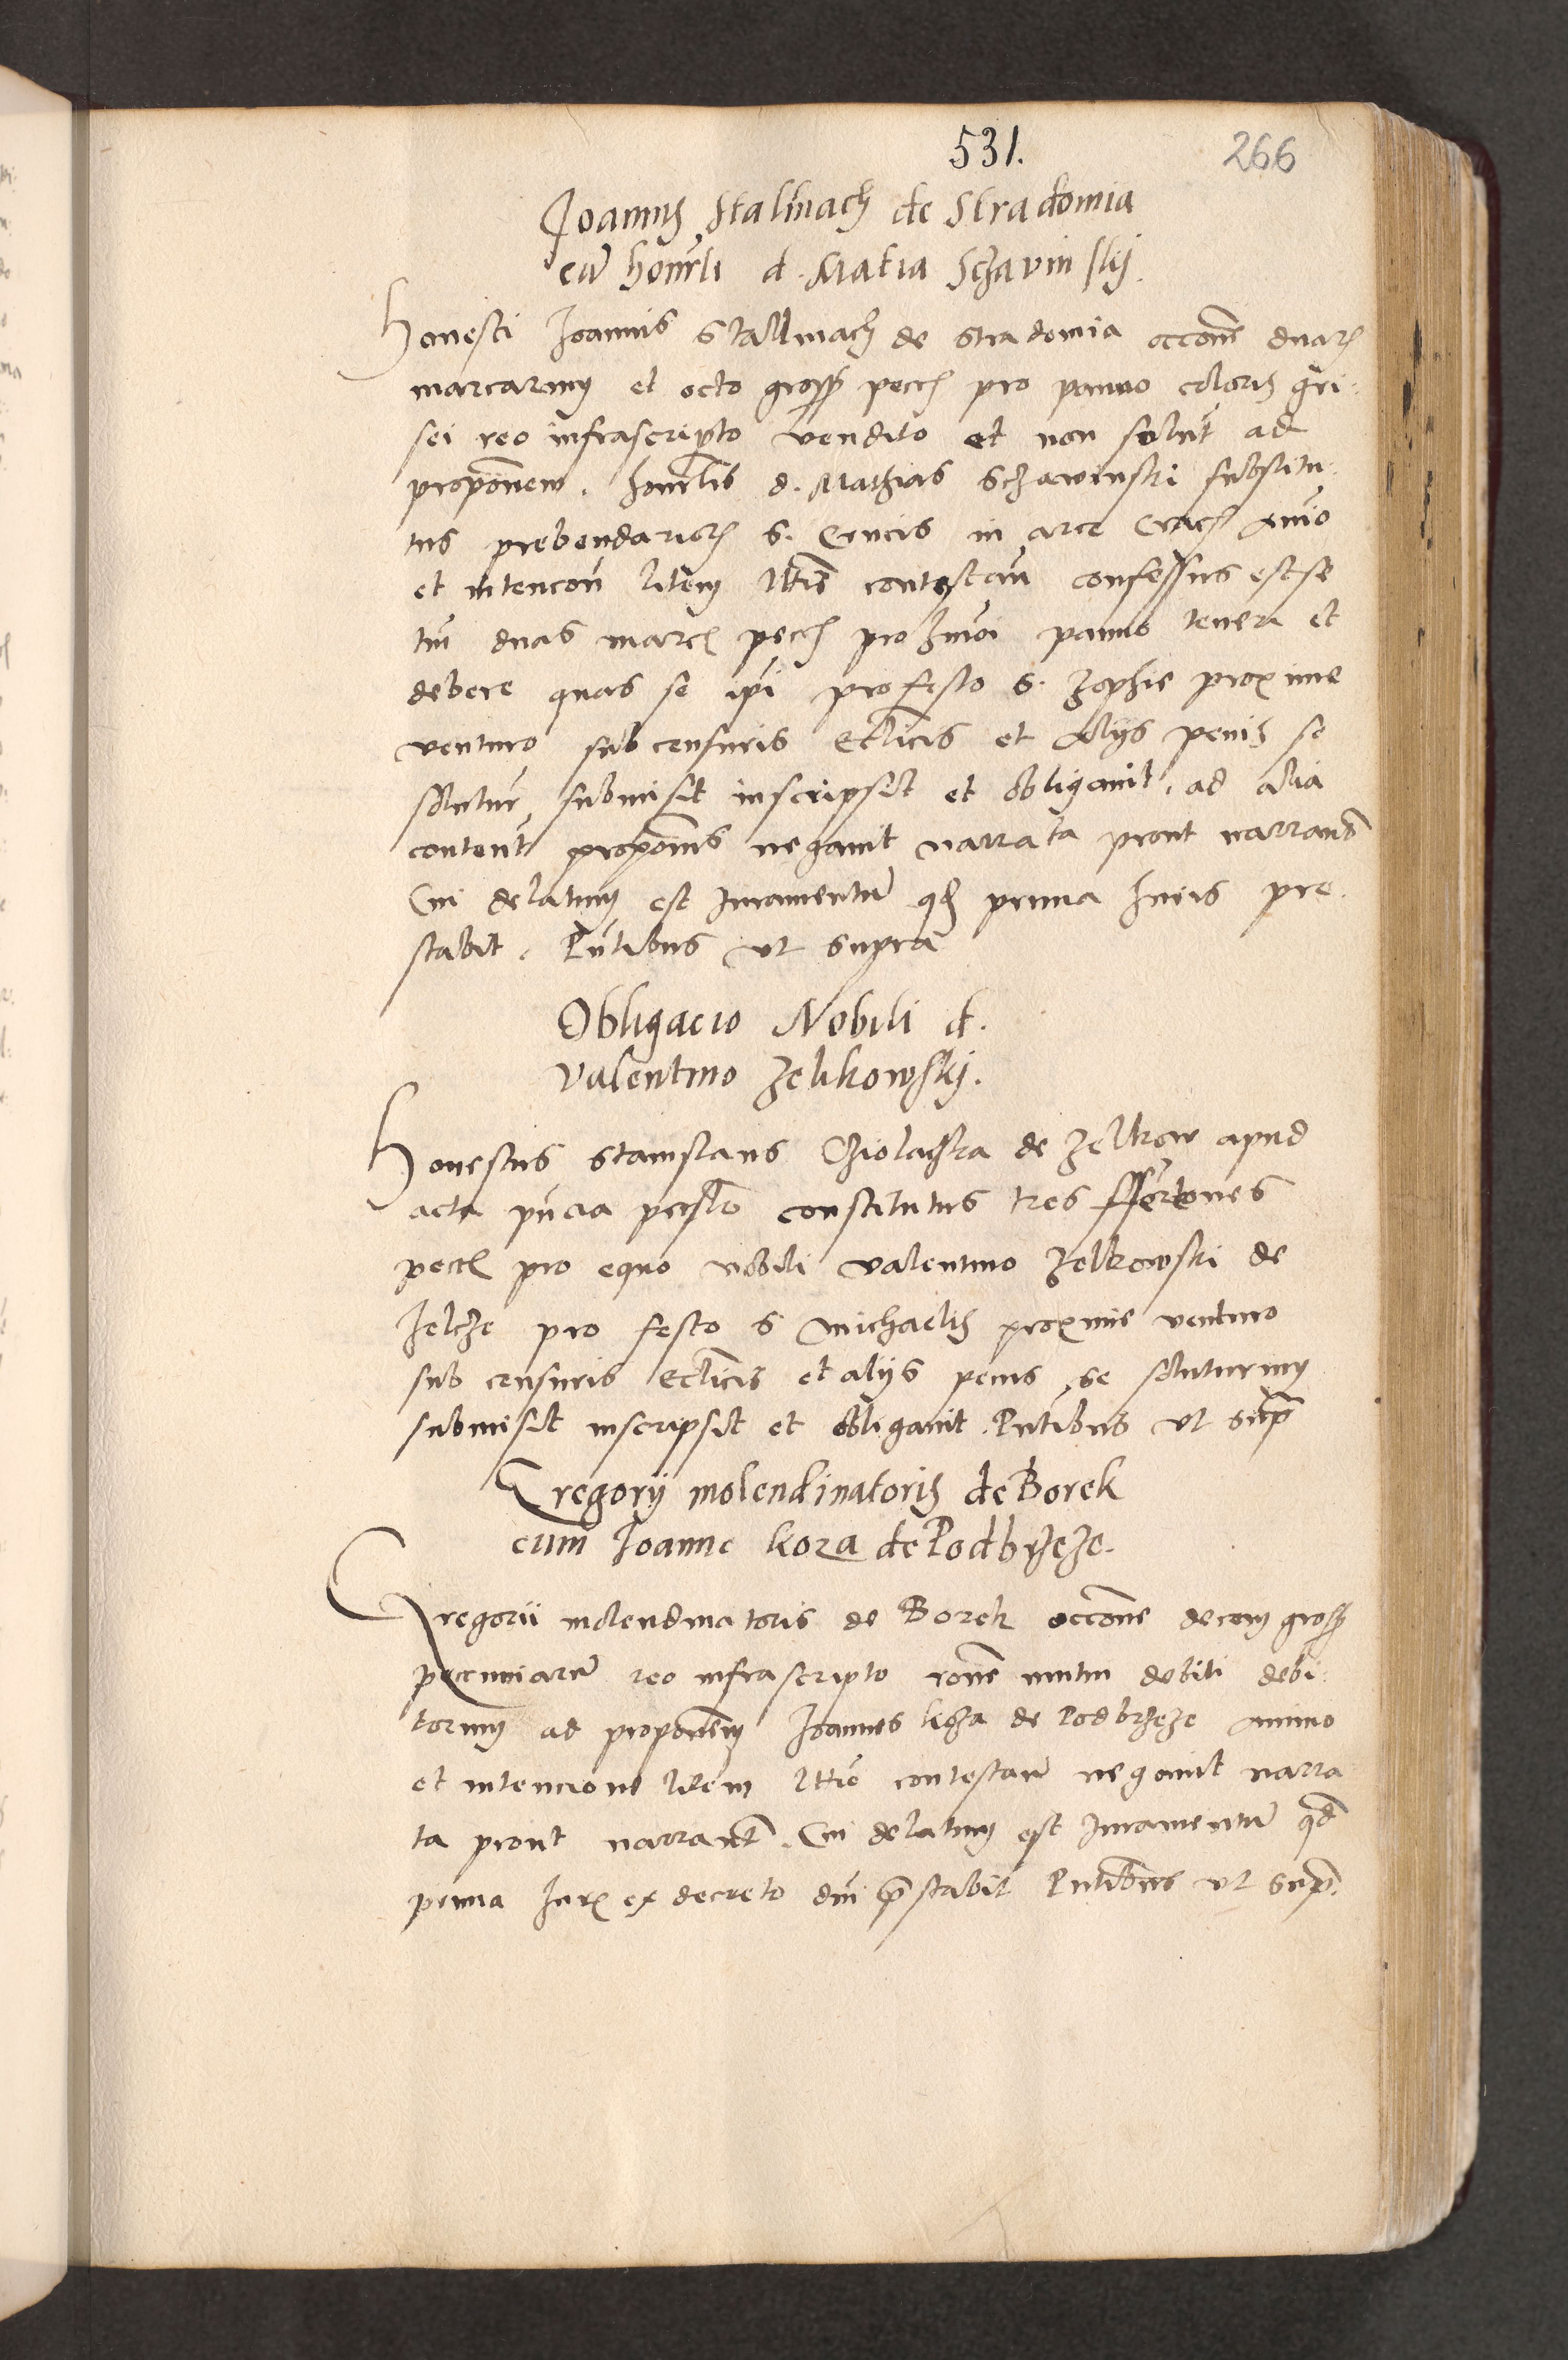 531.
266
Joannis Stalmach de Stradomia
cũ honorli d. Matia Schavinskÿ.
Honesti Joannis Stallmach de Stradomia occõne duar
marcarum et octo gross pecc pro panno coloris gri:
sei reo infrascripto vendito et non solut ad
propõnem. honorlis d. Mathias Schawinski substitu:
tus prebendarior S. Crucis in arce Crac anĩo
et intencõn litem lttis contestan confessus est se
tm duas marc pecc pro panni teneri et
debere quas se ipi pro festo S. Zophie proxime
venturo sub censuris Ecclicis et alÿs penis se
solutur submisit inscripsit et obligavit, ad alia
content propõnis negavit narrata prout narrant
Cui delatum est Juramentũ qd prima Juris pre:
stabit. Pñtibus ut supra
Obligacio Nobili d.
Valentino Zelikowskÿ.
Honestus Stanislaus de Zelkow apud
acta pñcia psto constitutus tres ffertones
pecc pro equo nobili Valentino Zelkowski de
Zelcze pro festo S Michaelis proxime venturo
sub censuris Ecclicis et alÿs penis se soluturum
submisit inscripsit et obligavit. Pñtibus ut supr
Gregorÿ molendinatoris de Borek
cum Joanne Koza de Podbrzeze.
Gregorii molendinatoris de Borek occõne decem gross
pecuniarũ reo infrascripto rõne mutui debiti debi:
torum ad propõnem Joannes Koza de Podbrzeze animo
et intencione litem lttie contestan negavit narra
ta prout narrant. Cui delatum est Juramentũ qd
prima Jur ex decreto dni p̃stabit Pñtibus ut supr.